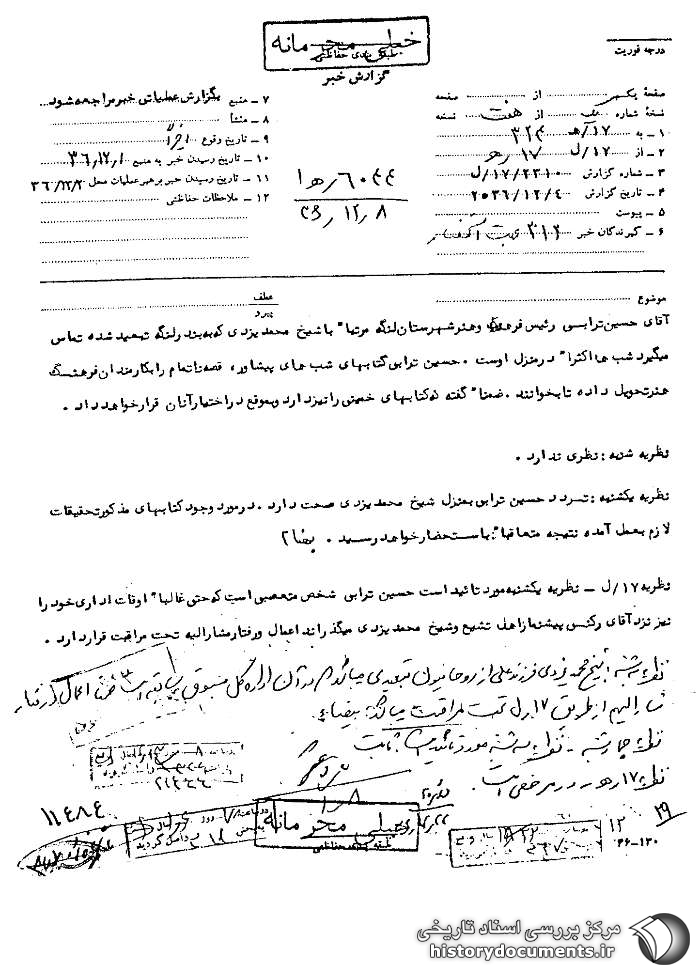 خیلی محرمانه
طبقه بندی حفاظتی
گزارش خبر
درجه فوریت
صفحهٔ یکم از صفحه
نسخهٔ شماره یک از هفت نسخه
۱ ـ به ۱۷/ھ ۳۲۴
۲ ـ از ۱۷/ل ۱۷ ره
۳ ـ شماره گزارش ۱۷/۲۳۱۰/ل
۴ ـ تاریخ گزارش ۲۵۳۶/۱۲/۴
۵ ـ پیوست
۶ ـ گیرندگان خبر ۳۱۲
۷ ـ منبع بگزارش عملیاتی خبر مراجعه شود
۸ ـ منشأ
۹ ـ تاریخ وقوع اخیراً
۱۰ ـ تاریخ رسیدن خبر به منبع ۳۶/۱۲/۱
۱۱ ـ تاریخ رسیدن خبر برهبر عملیات محل ۳۶/۱۲/۲
۱۲ ـ ملاحظات حفاظتی
۶۰۴۴ ره ۱
۳۶/۱۲/۸
موضوع
عطف
پیرو
آقای حسین ترابی رئیس فرهنگ و هنر شهرستان لنگه مرتبا" با شیخ محمد یزدی که به بندر لنگه تبعید شده تماس
میگیرد شب ها اکثرا" در منزل اوست . حسین ترابی کتابهای شب های پیشاور، قصه ناتمام را بکارمندان فرهنگ
هنر تحویل داده تا بخوانند . ضمنا" گفته که کتابهای خمینی را نیز دارد و بموقع در اختیار آنان قرار خواهد داد .
نظریه شنبه : نظری ندارد .
نظریه یکشنبه : تردد حسین ترابی بمنزل شیخ محمد یزدی صحت دارد . در مورد وجود کتابهای مذکور تحقیقات
لازم بعمل آمده نتیجه متعاقبا" باستحضار خواهد رسید . بیضا۲
نظریه ۱۷/ل ـ نظریه یکشنبه مورد تائید است حسین ترابی شخص متعصبی است که حتی غالبا" اوقات اداری خود را
نیز نزد آقای رکنی پیشنماز اهل تشیع و شیخ محمد یزدی میگذراند اعمال و رفتار مشارالیه تحت مراقبت قرار دارد .
نظریه سه شنبه : شیخ محمد یزدی فرزند علی از روحانیون تبعیدی میباشد که در آن اداره کل مسبوق بسابقه است ضمناً اعمال و رفتار
مشارالیهم از طریق ۱۷/ل تحت مراقبت میباشد بیضاء
نظریه چهارشنبه ـ نظریه سه شنبه مورد تائید است . ثابت
نظریه ۱۷ ره ـ در مرخصی است .
۱۱۴۸۴
خیلی محرمانه
طبقه بندی حفاظتی
۱۲ ۲۹
۳۶-۱۳۰
مرکز بررسی اسناد تاریخی
historydocuments.ir